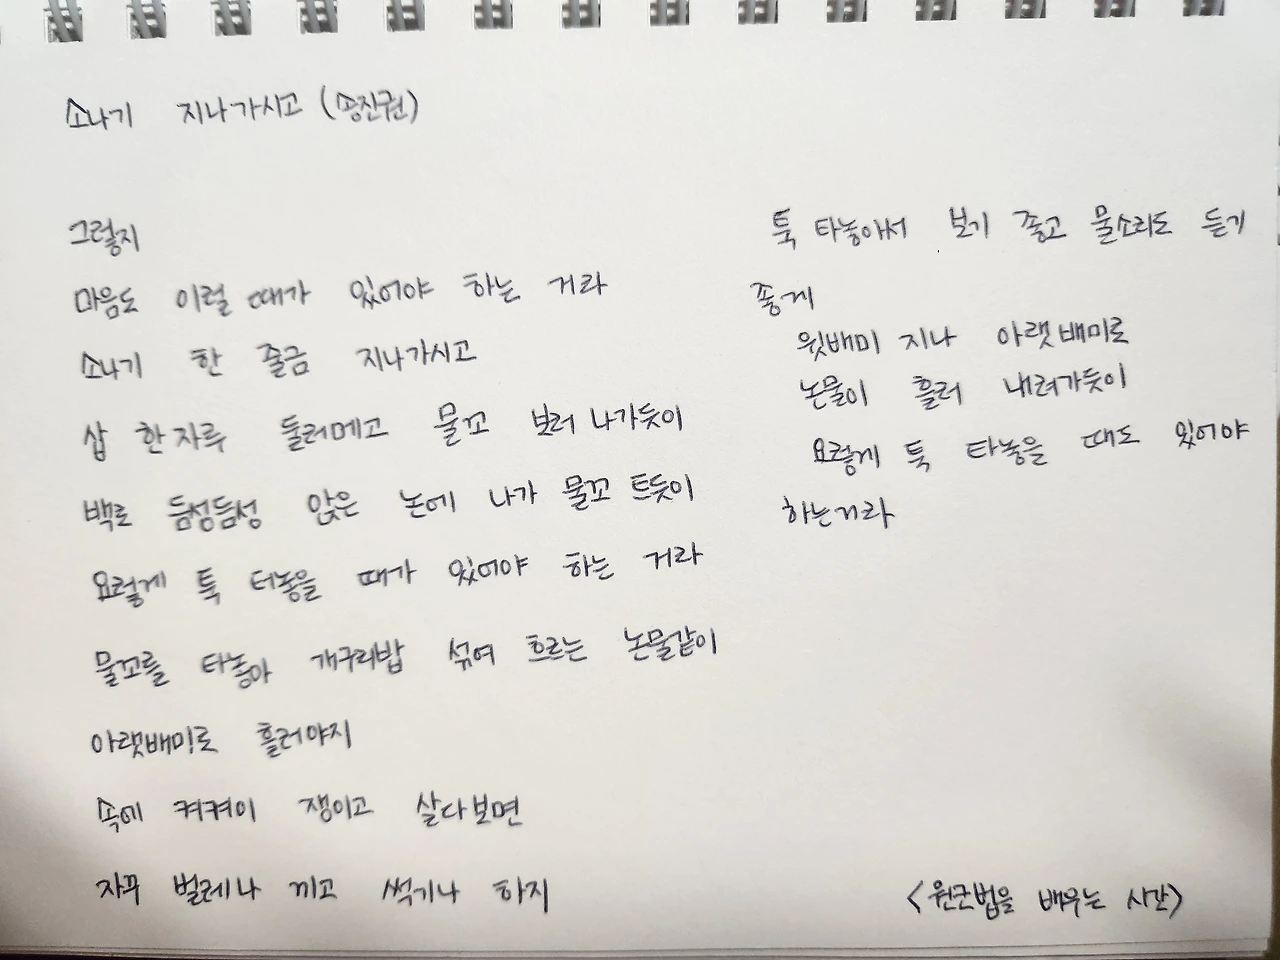 소나기 지나가시고 (송진권)
그렇지
마음도 이럴 때가 있어야 하는 거라
소나기 한 줄금 지나가시고
삽 한자루 둘러메고 물꼬 보러 나가듯이
백로 듬성듬성 앉은 논에 나가 물꼬 트듯이
요렇게 툭 터놓을 때가 있어야 하는 거라
물꼬를 타놓아 개구리밥 섞여 흐르는 논물같이
아랫배미로 흘러야지
속에 켜켜이 쟁이고 살다보면
자꾸 벌레나 끼고 썩기나 하지
툭 타놓아서 보기 좋고 물소리도 듣기
좋게
윗배미 지나 아랫배미로
논물이 흘러 내려가듯이
요렇게 툭 타놓을 때도 있어야
하는거라
<원근법을 배우는 시간>